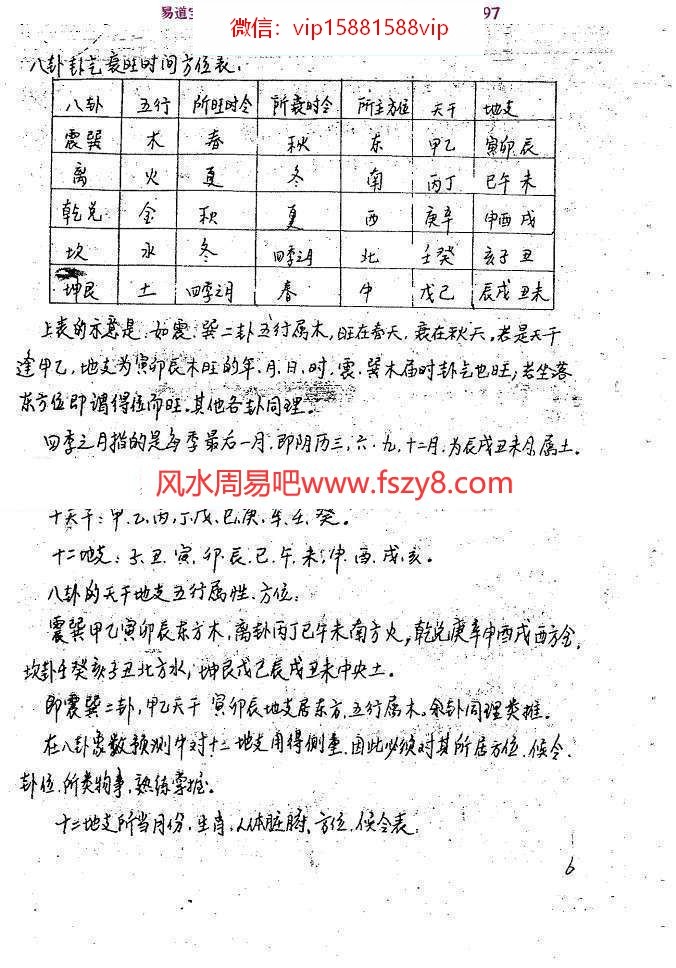 易道
97
微信：vip15881588vip
八卦卦气衰旺时间方位表：
八卦 五行 所旺时令 所衰时令 所主方位 天干 地支
震巽 木 春 秋 东 甲乙 寅卯辰
离 火 夏 冬 南 丙丁 巳午未
乾兑 金 秋 夏 西 庚辛 申酉戌
坎 水 冬 四季之月 北 壬癸 亥子丑
坤艮 土 四季之月 春 中 戊己 辰戌丑未
上表的示意是.如震.巽二卦五行属木,旺在春天,衰在秋天.若是天干
逢甲乙,地支为寅卯辰木旺的年.月.日.时.震.巽木届时卦气也旺;若坐落
东方位即谓得位而旺.其他各卦同理。
四季之月指的是每季最后一月.即阴历三.六.九.十二月.为辰戌丑未月属土。
风水周易吧www.fszy8.com
十天干:甲.乙.丙.丁.戊.己.庚.辛.壬.癸。
十二地支:子.丑.寅.卯.辰.巳.午.未.申.酉.戌.亥。
八卦的天干地支五行属性.方位:
震巽甲乙寅卯辰东方木,离卦丙丁巳午未南方火,乾兑庚辛申酉戌西方金,
坎卦壬癸亥子丑北方水,坤艮戊己辰戌丑未中央土。
即震巽二卦,甲乙天干 寅卯辰地支居东方,五行属木。余卦同理类推。
在八卦象数预测中对十二地支用得侧重.因此必须对其所居方位.候令.
卦位.所类物事.熟练掌握。
十二地支所当月份.生肖.人体脏腑.方位.候令表.
6